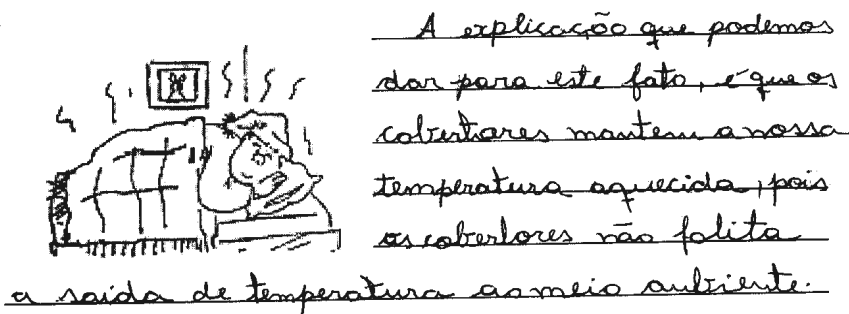 A explicação que podemos
dar para este fato, é que os
cobertores mantem a nossa
temperatura aquecida, pois
os cobertores não falita
a saida de temperatura ao meio aubiente.